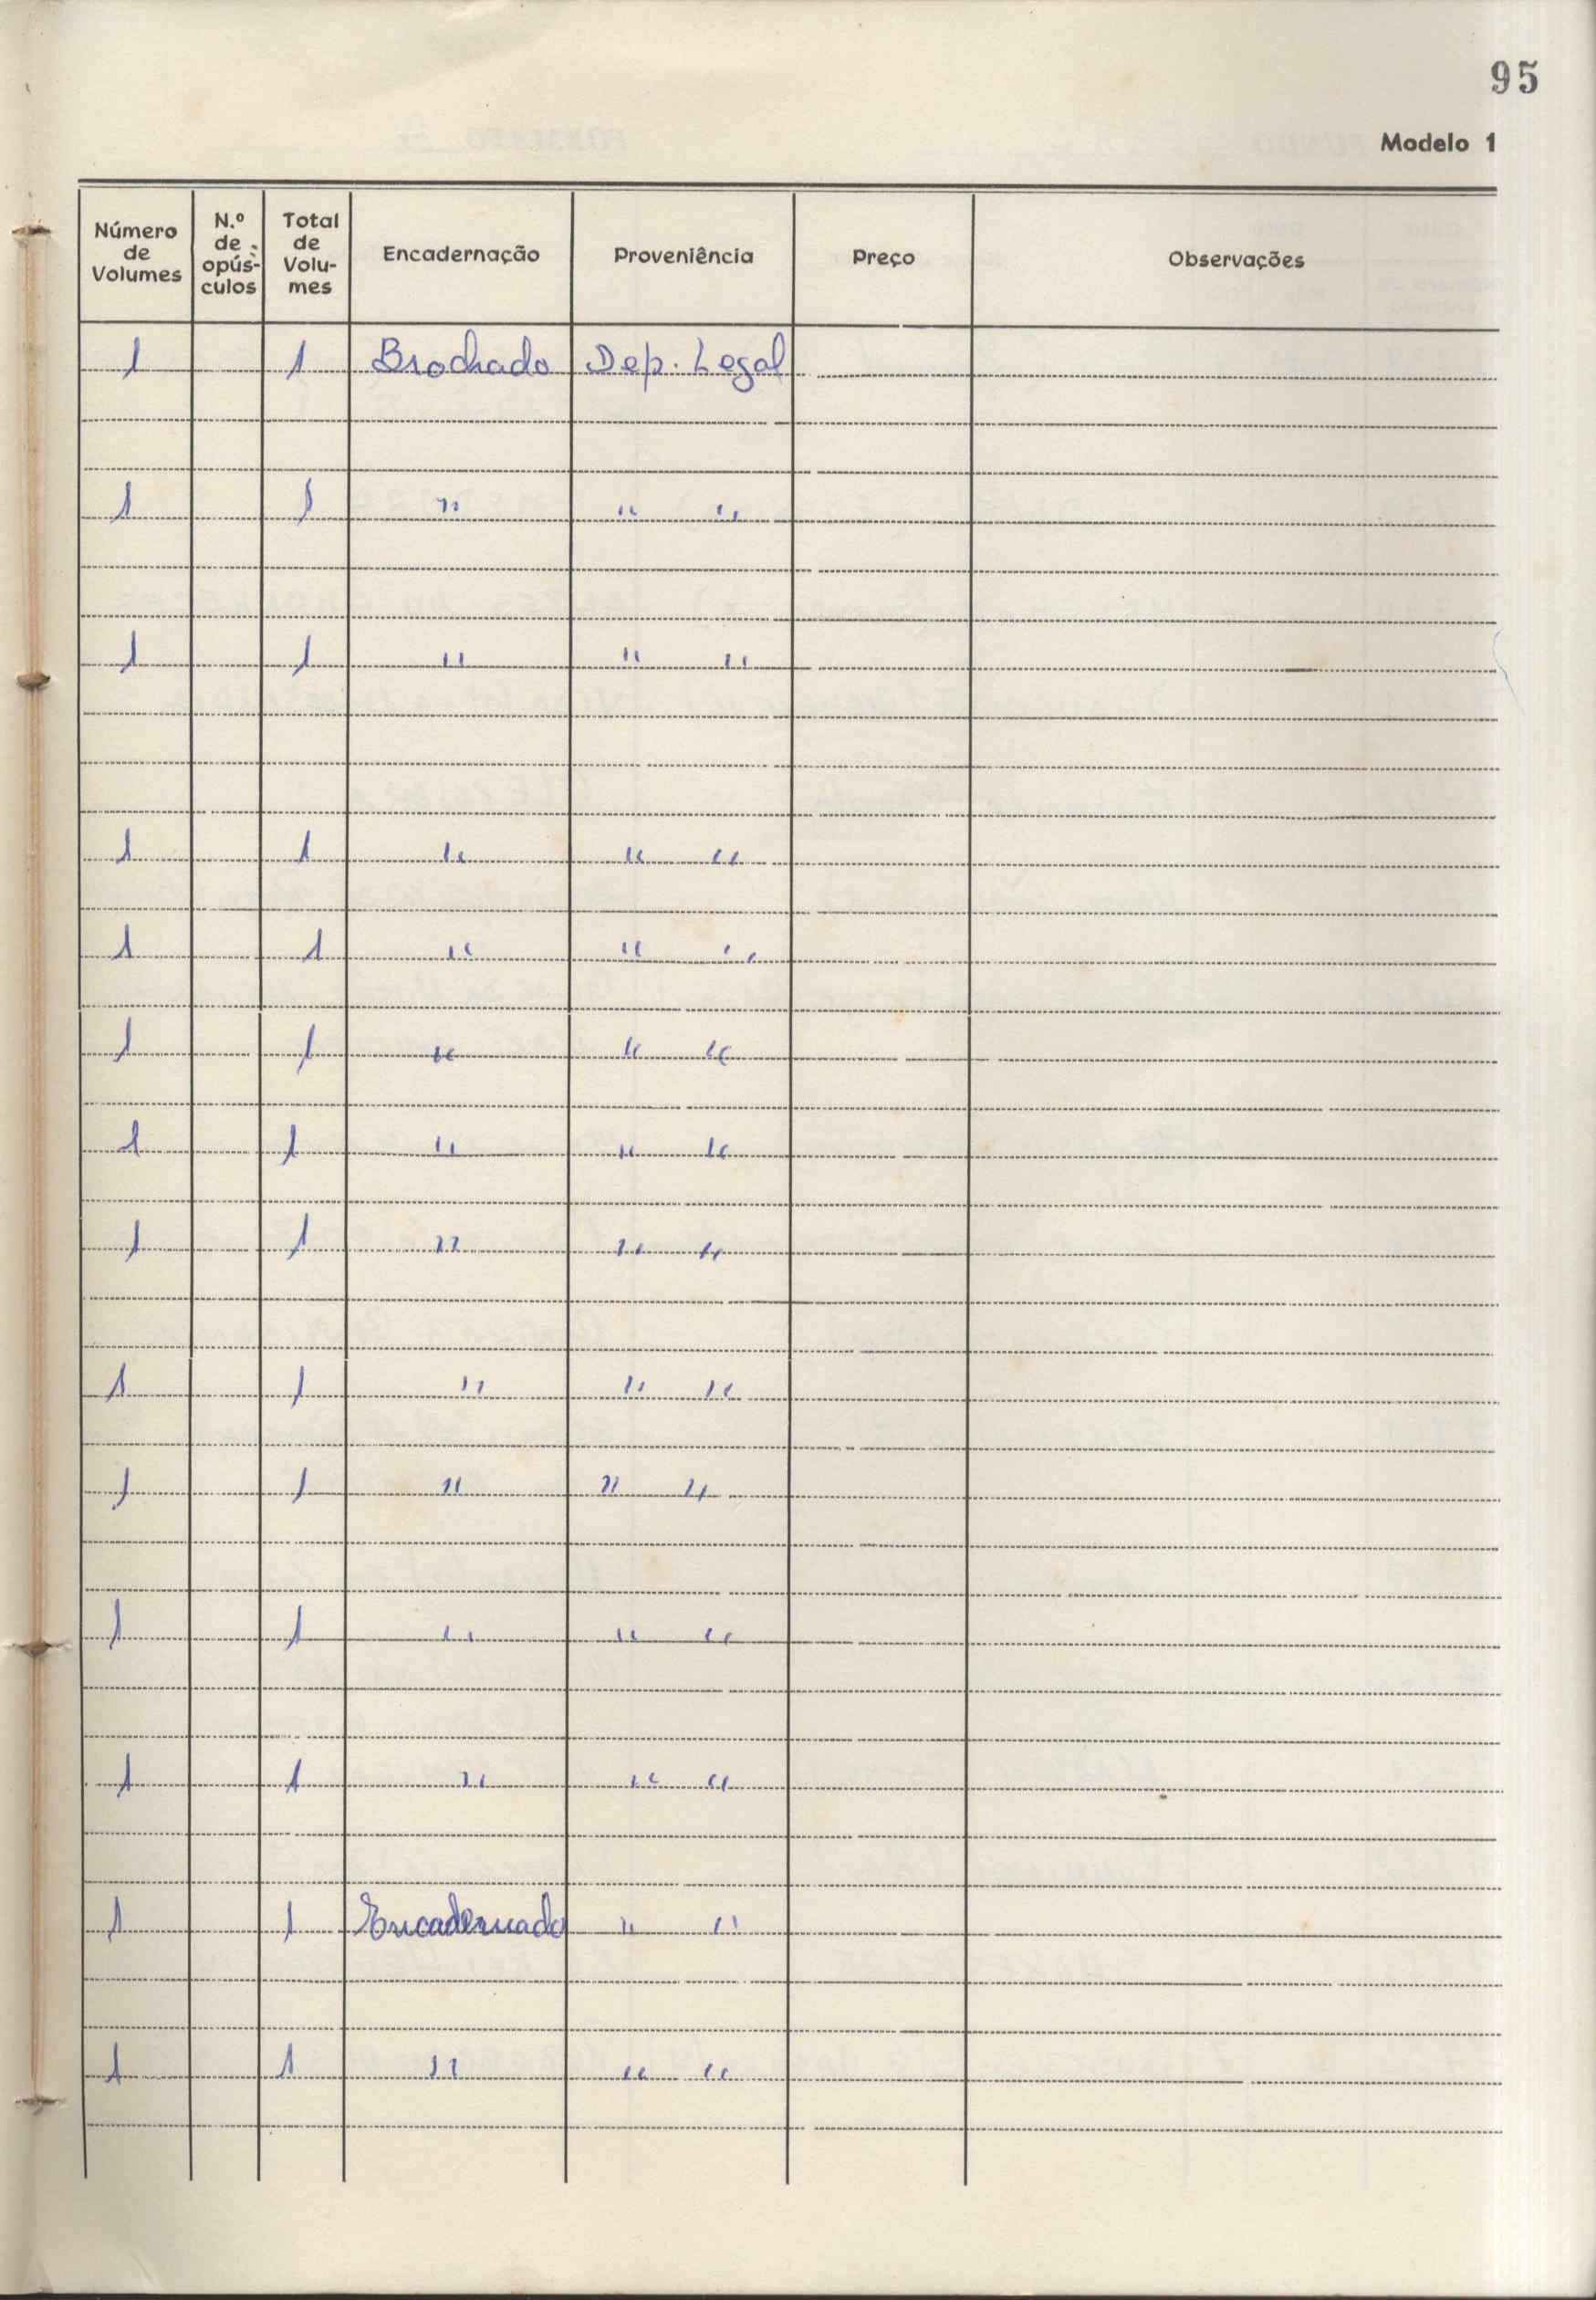 95
Modelo 1
Número de Volumes | N.º de opús-culos | Total de Volu-mes | Encadernação | Proveniência | Preço | Observações
1 | | 1 | Brochado | Dep. Legal
1 | | 1 | " | " "
1 | | 1 | " | " "
1 | | 1 | " | " "
1 | | 1 | " | " "
1 | | 1 | " | " "
1 | | 1 | " | " "
1 | | 1 | " | " "
1 | | 1 | " | " "
1 | | 1 | " | " "
1 | | 1 | " | " "
1 | | 1 | " | " "
1 | | 1 | Encadernado | " "
1 | | 1 | " | " "